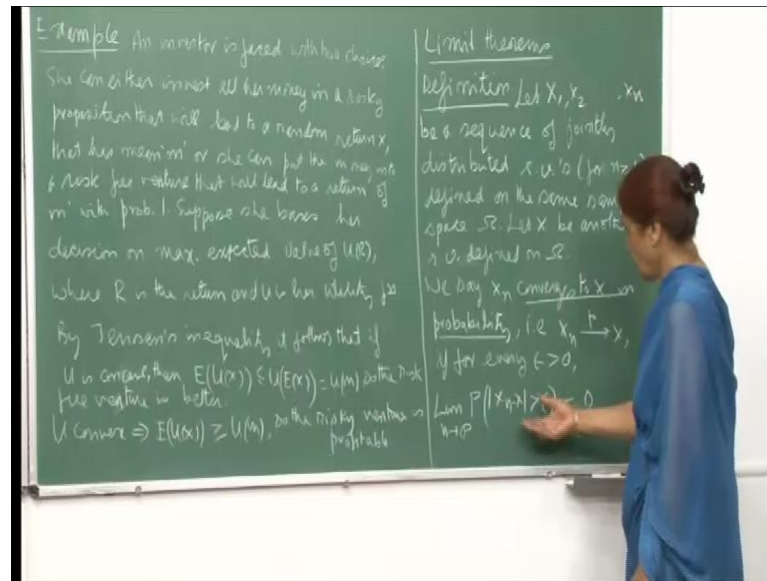 Example An investor is faced with two choices.
She can either invest all her money in a risky
proposition that will lead to a random return X,
that has mean 'm' or she can put the money into
a risk free venture that will lead to a return of
m with prob. 1. Suppose she bases her
decision on max. expected value of U(R),
where R is the return and U is her utility
By Jensen's inequality it follows that if
U is concave, then E(U(X)) ≤ U(E(X)) = U(m) so the risk
free venture is better.
U convex ⇒ E(U(X)) ≥ U(m), so the risky venture is
profitable
Limit theorems
Definition Let X₁, X₂ . Xn
be a sequence of jointly
distributed r.v.'s (for n ≥
defined on the same
space Ω. Let X be
r.v. defined on Ω.
We say Xn converges to X in
probability, i.e Xn →ᵖ X,
if for every ε > 0,
Lim P(|Xn-X| > 0
n→∞